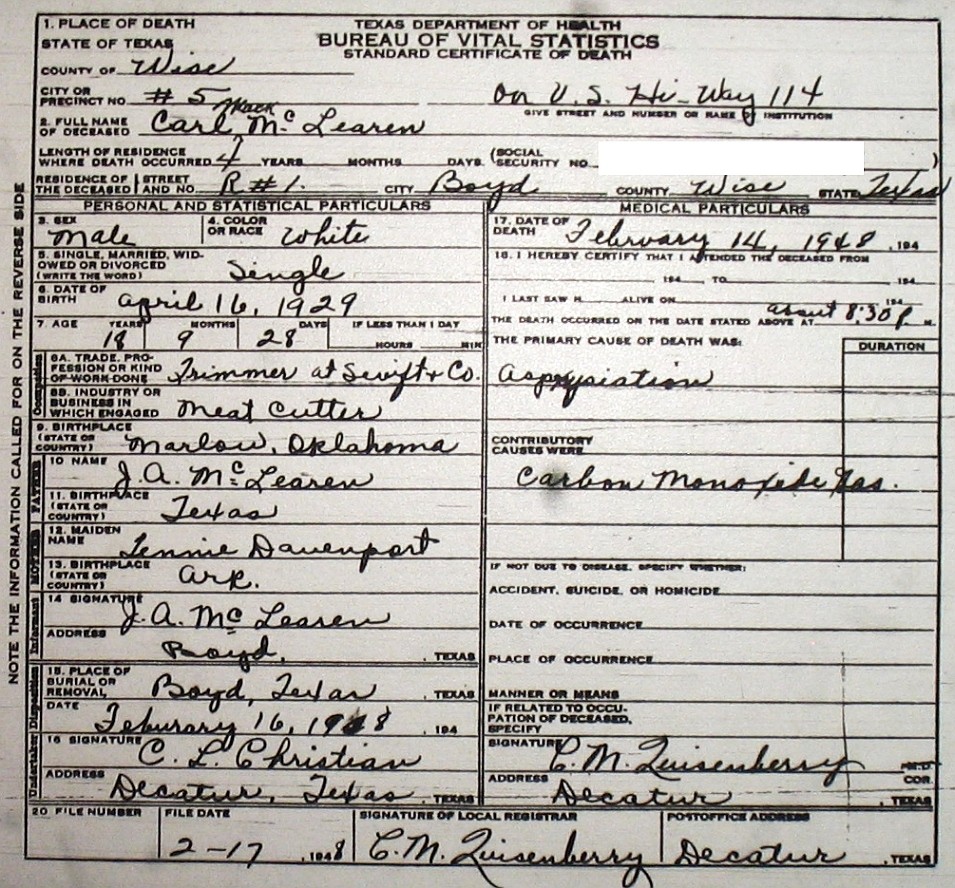 1. PLACE OF DEATH
STATE OF TEXAS
TEXAS DEPARTMENT OF HEALTH
BUREAU OF VITAL STATISTICS
STANDARD CERTIFICATE OF DEATH
COUNTY OF Wise
CITY OR PRECINCT NO. #5 On U.S. Hi-Way 114
GIVE STREET AND NUMBER OR NAME OF INSTITUTION
2. FULL NAME OF DECEASED Carl, Mack Mc Learen
LENGTH OF RESIDENCE WHERE DEATH OCCURRED 4 YEARS MONTHS DAYS. (SOCIAL SECURITY NO. )
RESIDENCE OF THE DECEASED STREET AND NO. R#1. CITY Boyd COUNTY Wise STATE Texas
PERSONAL AND STATISTICAL PARTICULARS
3. SEX Male 4. COLOR OR RACE White
5. SINGLE, MARRIED, WIDOWED OR DIVORCED (WRITE THE WORD) Single
6. DATE OF BIRTH april 16, 1929
7. AGE YEARS 18 MONTHS 9 DAYS 28 IF LESS THAN 1 DAY HOURS MIN
Occupation
8A. TRADE, PROFESSION OR KIND OF WORK DONE Trimmer at Swift & Co.
8B. INDUSTRY OR BUSINESS IN WHICH ENGAGED Meat Cutter
9. BIRTHPLACE (STATE OR COUNTRY) Marlow, Oklahoma
FATHER
10 NAME J.A. Mc Learen
11. BIRTHPLACE (STATE OR COUNTRY) Texas
MOTHER
12. MAIDEN NAME Lennie Davenport
13. BIRTHPLACE (STATE OR COUNTRY) Ark.
Informant
14 SIGNATURE J.A. Mc Learen
ADDRESS Boyd, , TEXAS
Disposition
15. PLACE OF BURIAL OR REMOVAL, Boyd, Texas , TEXAS
DATE Feburary 16, 1948 , 194
Undertaker
16 SIGNATURE C. L. Christian
ADDRESS Decatur, Texas , TEXAS
MEDICAL PARTICULARS
17. DATE OF DEATH February 14, 1948 , 194
18. I HEREBY CERTIFY THAT I ATTENDED THE DECEASED FROM
194 TO 194
I LAST SAW H ALIVE ON 194
THE DEATH OCCURRED ON THE DATE STATED ABOVE AT about 8:30 P. M.
THE PRIMARY CAUSE OF DEATH WAS: DURATION
Aspxysiation
CONTRIBUTORY CAUSES WERE
Carbon Monoxide Gas.
IF NOT DUE TO DISEASE, SPECIFY WHETHER:
ACCIDENT, SUICIDE, OR HOMICIDE
DATE OF OCCURRENCE
PLACE OF OCCURRENCE
MANNER OR MEANS
IF RELATED TO OCCUPATION OF DECEASED, SPECIFY
SIGNATURE C.M. Quisenberry M.D. COR.
ADDRESS Decatur , TEXAS
20 FILE NUMBER FILE DATE 2-17 , 1948 SIGNATURE OF LOCAL REGISTRAR C.M. Quisenberry POSTOFFICE ADDRESS Decatur , TEXAS
NOTE THE INFORMATION CALLED FOR ON THE REVERSE SIDE